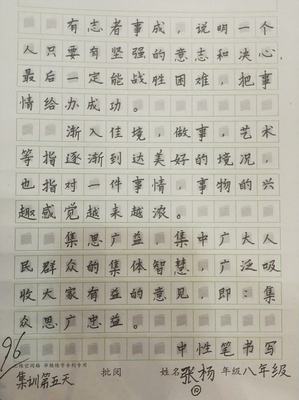 有志者事成，说明一个
人只要有坚强的意志和决心
最后一定能战胜困难，把事
情给办成功。
渐入佳境，做事，艺术
等指逐渐到达美好的境况，
也指对一件事情，事物的兴
趣感觉越来越浓。
集思广益，集中广大人
民群众的集体智慧，广泛吸
收大家有益的意见，即：集
众思广忠益。
中性笔书写
96
集训第五天 批阅 姓名 张杨 年级 八年级